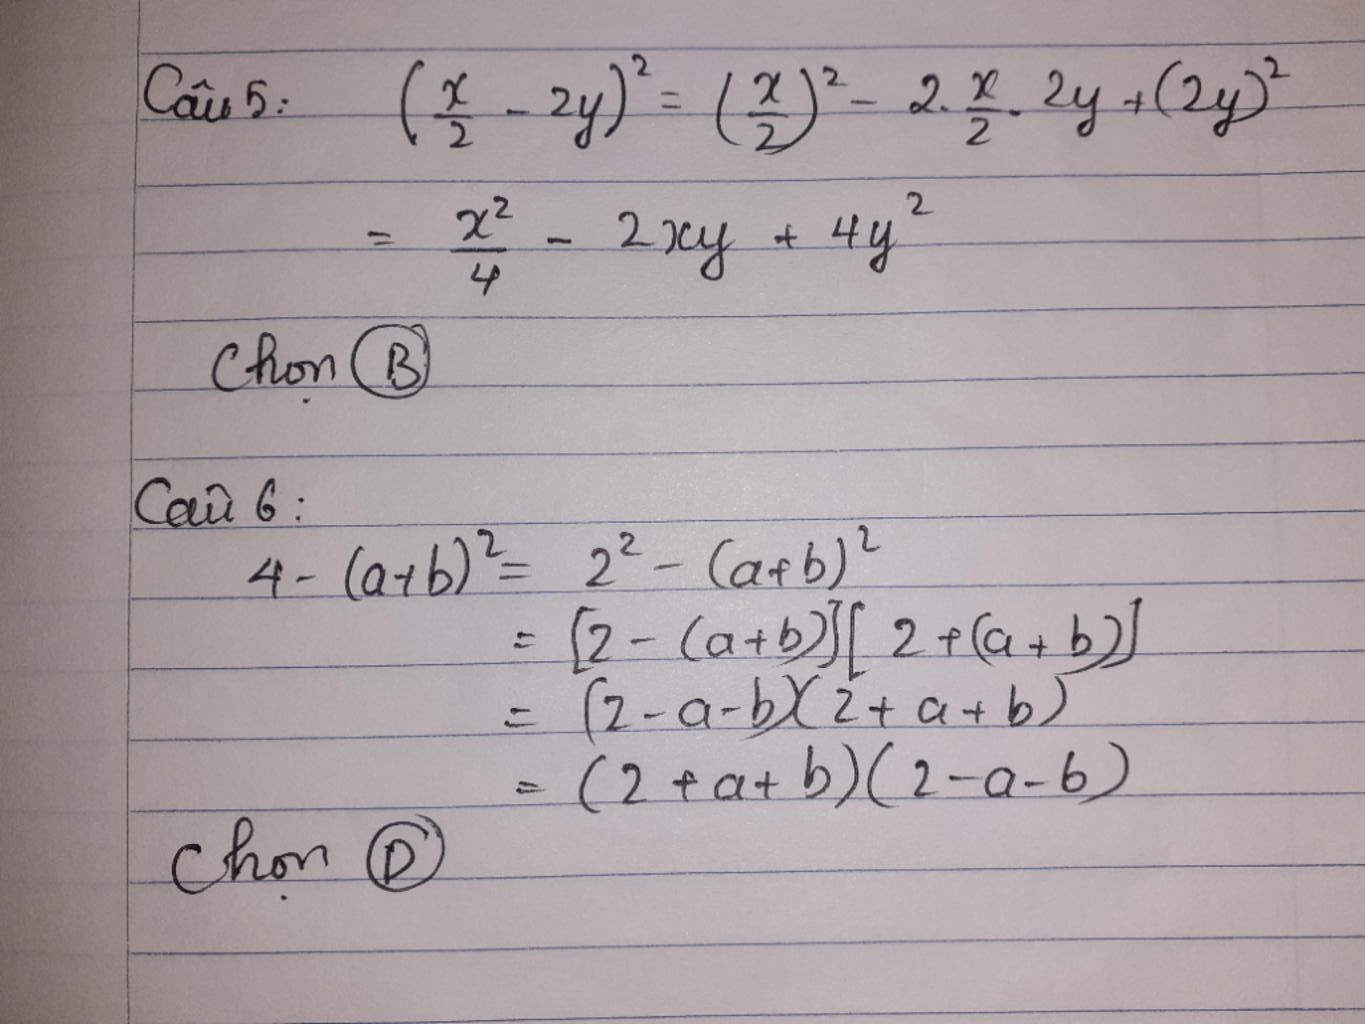 Câu 5: (x/2 - 2y)² = (x/2)² - 2. x/2 . 2y + (2y)²
= x²/4 - 2xy + 4y²
Chọn B
Câu 6:
4 - (a+b)² = 2² - (a+b)²
= [2 - (a+b)][2 + (a+b)]
= (2-a-b)(2+a+b)
= (2+a+b)(2-a-b)
Chọn D